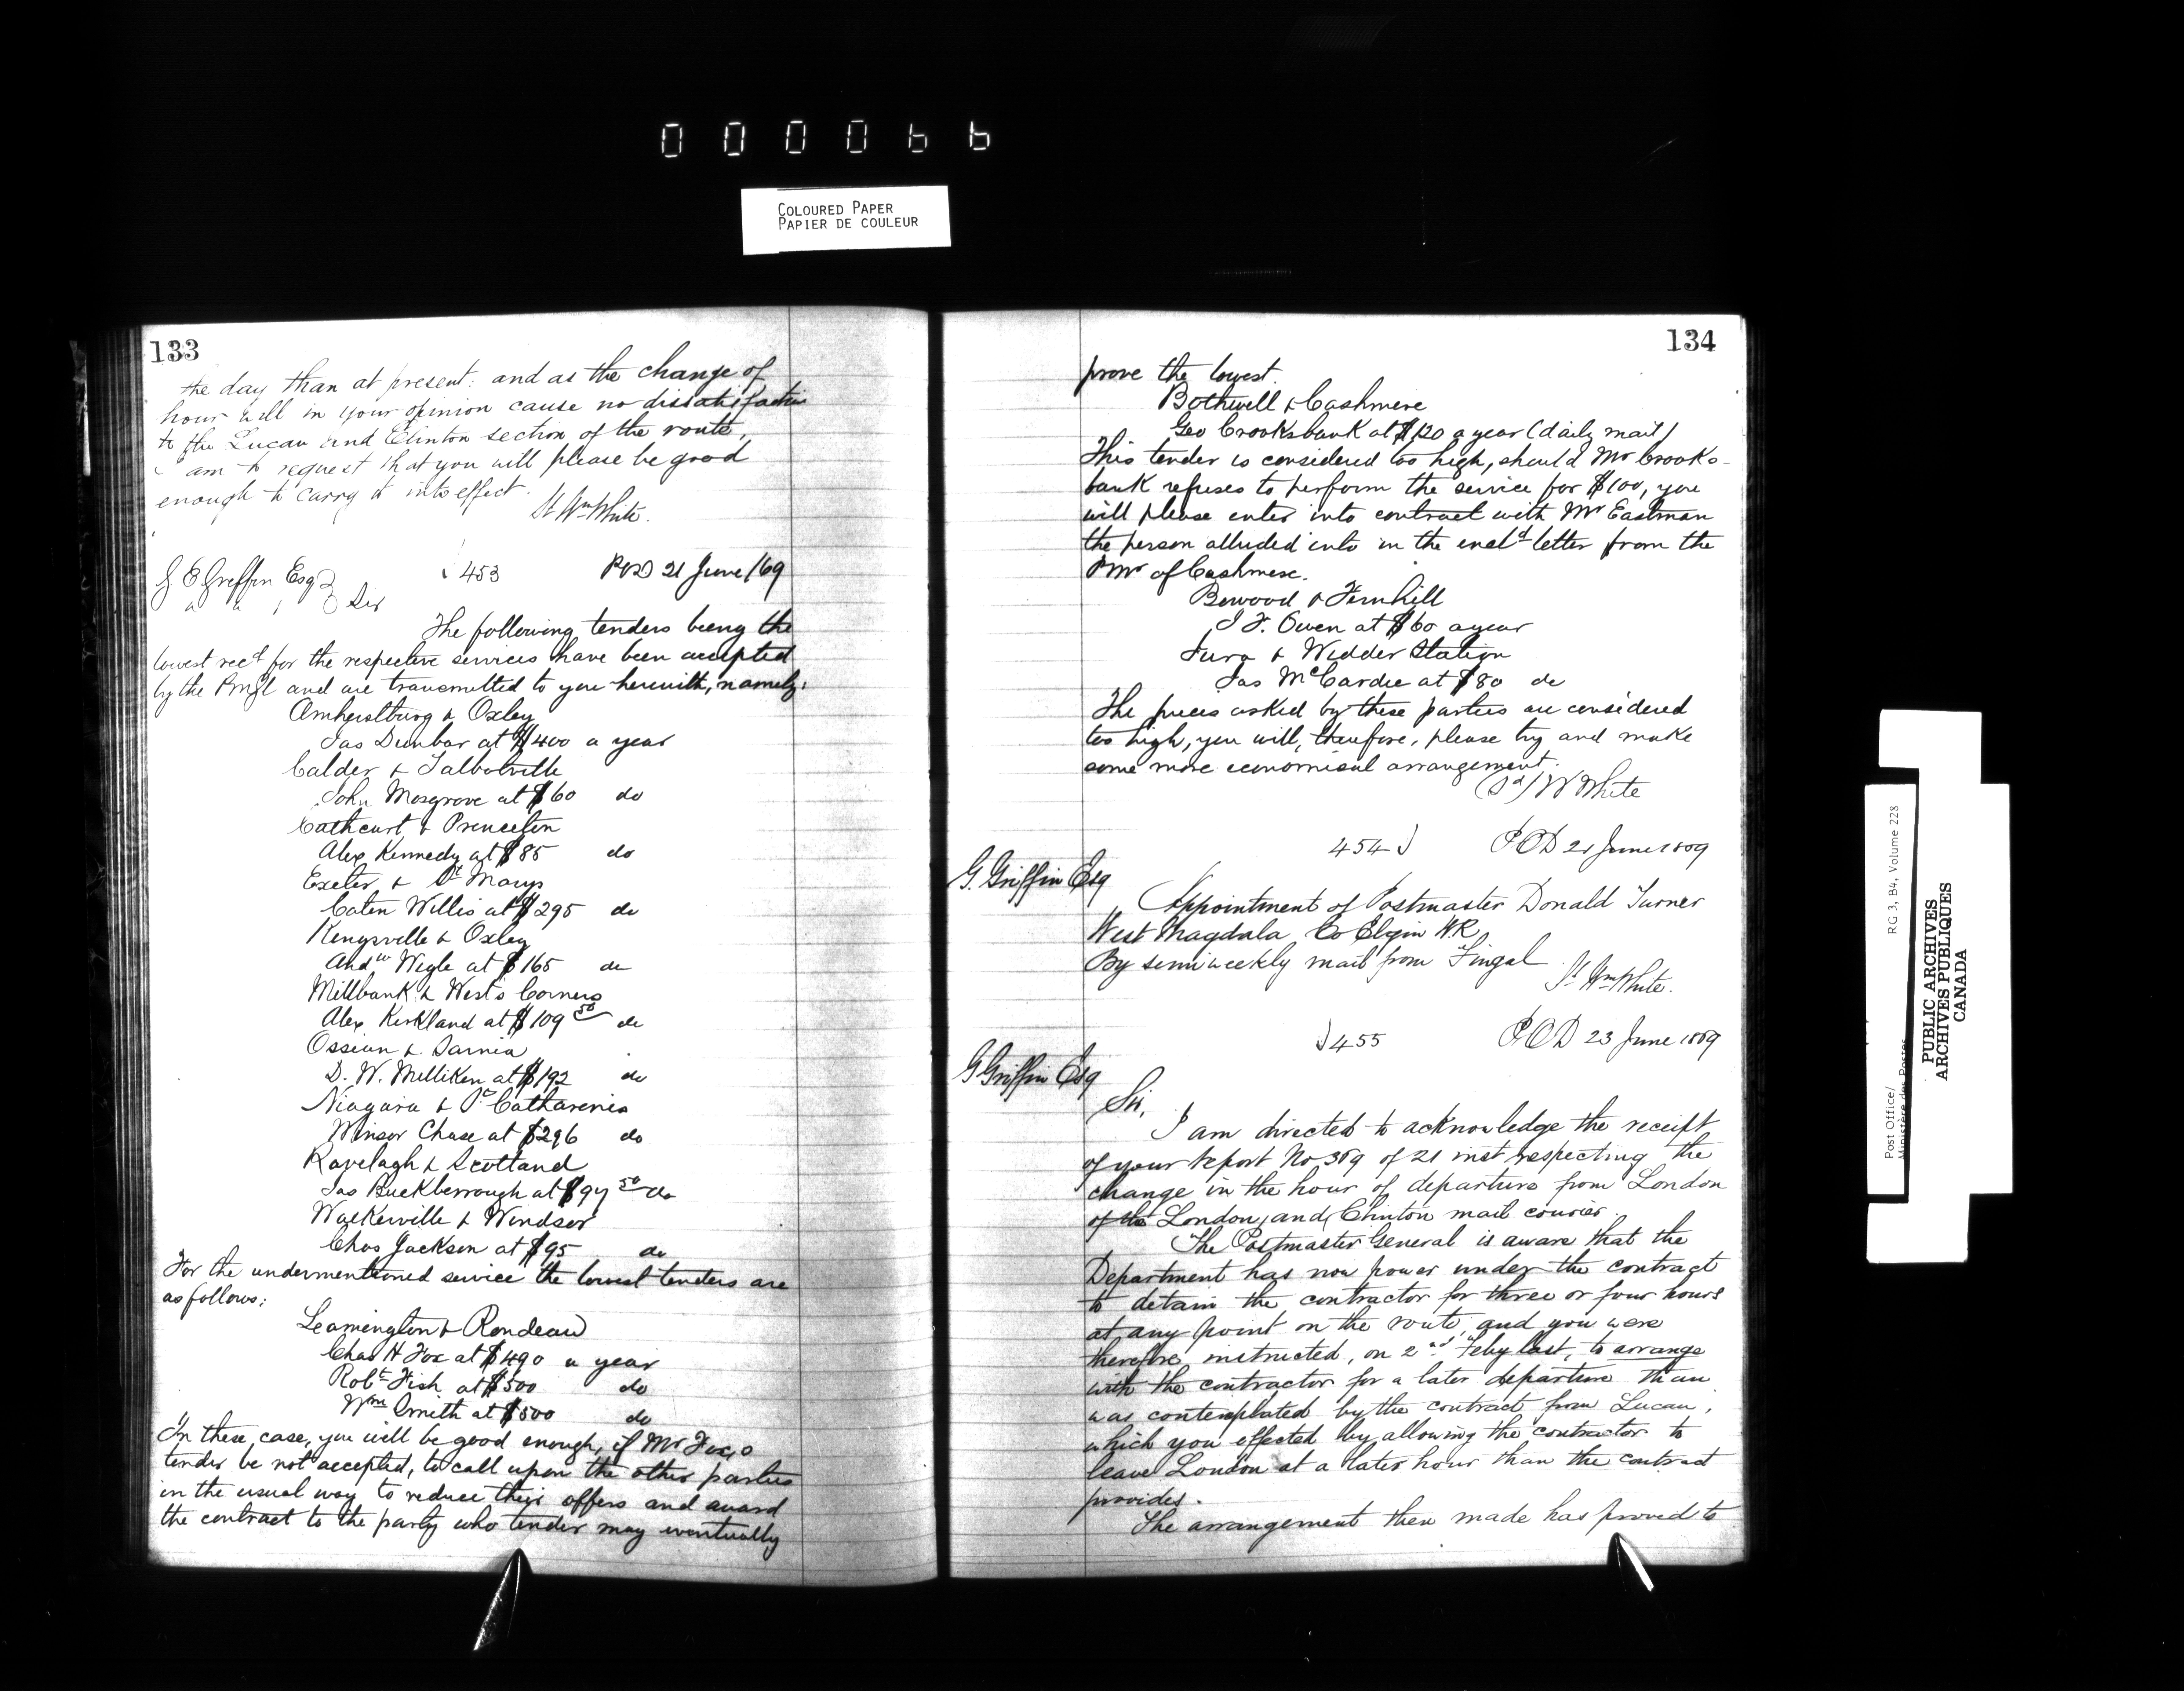 000066
COLOURED PAPER
PAPIER DE COULEUR
133
the day than at present: and as the change of
hour will in your opinion cause no dissatisfaction
to the Lucan and Clinton section of the route,
I am to request that you will please be good
enough to carry it into effect.
Sd Wm White.
G E Griffin Esq
453
POD 21 June/69
Sir
The following tenders being the
lowest recd for the respective services have been accepted
by the PMGl and are transmitted to you herewith, namely:
Amherstburg & Oxley
Jas Dunbar at $400 a year
Calder & Talbotville
John Mosgrove at $60 do
Cathcart & Princeton
Alex Kennedy at $85 do
Exeter & St Marys
Caten Willis at $295 do
Kingsville & Oxley
Andw Wigle at $165 do
Millbank & West's Corners
Alex Kirkland at $109 50 do
Ossian & Sarnia
D. W. Milliken at $192 do
Niagara & St Catharines
Winsor Chase at $296 do
Ravelagh & Scotland
Jas Buckberrough at $97 50 do
Walkerville & Windsor
Chas Jackson at $95 do
For the undermentioned service the lowest tenders are
as follows:
Leamington & Rondeau
Chas H Fox at $490 a year
Robt Fish at $500 do
Wm Smith at $500 do
In these case, you will be good enough, if Mr Fox's
tender be not accepted, to call upon the other parties
in the usual way to reduce their offers and award
the contract to the party who tender may eventually
134
prove the lowest.
Bothwell & Cashmere
Geo Crooksbank at $120 a year (daily mail)
This tender is considered too high, should Mr Crooks-
bank refuses to perform the service for $100, you
will please enter into contract with Mr Eastman
the person alluded into in the encld letter from the
PMr of Cashmere.
Birwood & Fernhill
J F. Owen at $60 a year
Jura & Widder Station
Jas McCardie at $80 do
The prices asked by these parties are considered
too high, you will, therefore, please try and make
some more economical arrangement.
(Sd) W White
454
POD 21 June 1869
G. Griffin Esq
Appointment of Postmaster Donald Turner
West Magdala Co Elgin W.R
By semi weekly mail from Fingal
Sd Wm White.
455
POD 23 June 1869
G Griffin Esq
Sir,
I am directed to acknowledge the receipt
of your report No 369 of 21 inst respecting the
change in the hour of departure from London
of the London, and Clinton mail courier.
The Postmaster General is aware that the
Department has now power under the contract
to detain the contractor for three or four hours
at any point on the route, and you were
therefore instructed, on 2nd Feby last, to arrange
with the contractor for a later departure than
was contemplated by the contract from Lucan,
which you effected by allowing the contractor to
leave London at a later hour than the contract
provides.
The arrangement then made has proved to
Post Office/
Ministère des Postes
RG 3, B4, Volume 228
PUBLIC ARCHIVES
ARCHIVES PUBLIQUES
CANADA